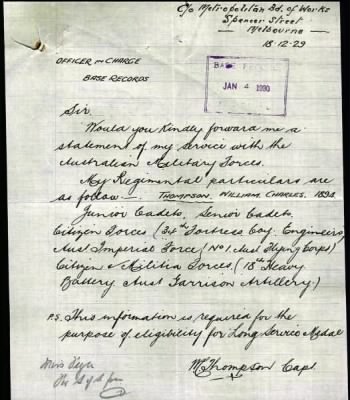 C/o Metropolitan Bd. of Works
Spencer Street
Melbourne
18-12-29
OFFICER IN CHARGE
BASE RECORDS
BASE RECORDS
JAN 4 1930
Sir.
Would you Kindly forward me a
statement of my service with the
Australian Military Forces.
My Regimental particulars are
as follow -. THOMPSON, WILLIAM, CHARLES, 1894
Junior Cadets, Senior Cadets.
Citizen Forces (34th Fortress Coy. Engineers)
Aust Imperial Force (No 1. Aus Flying Corps)
Citizen & Militia Forces. (18th Heavy
Battery Aust Garrison Artillery.)
P.S. This information is required for the
purpose of eligibility for Long Service Medal
Thompson Capt.
Miss